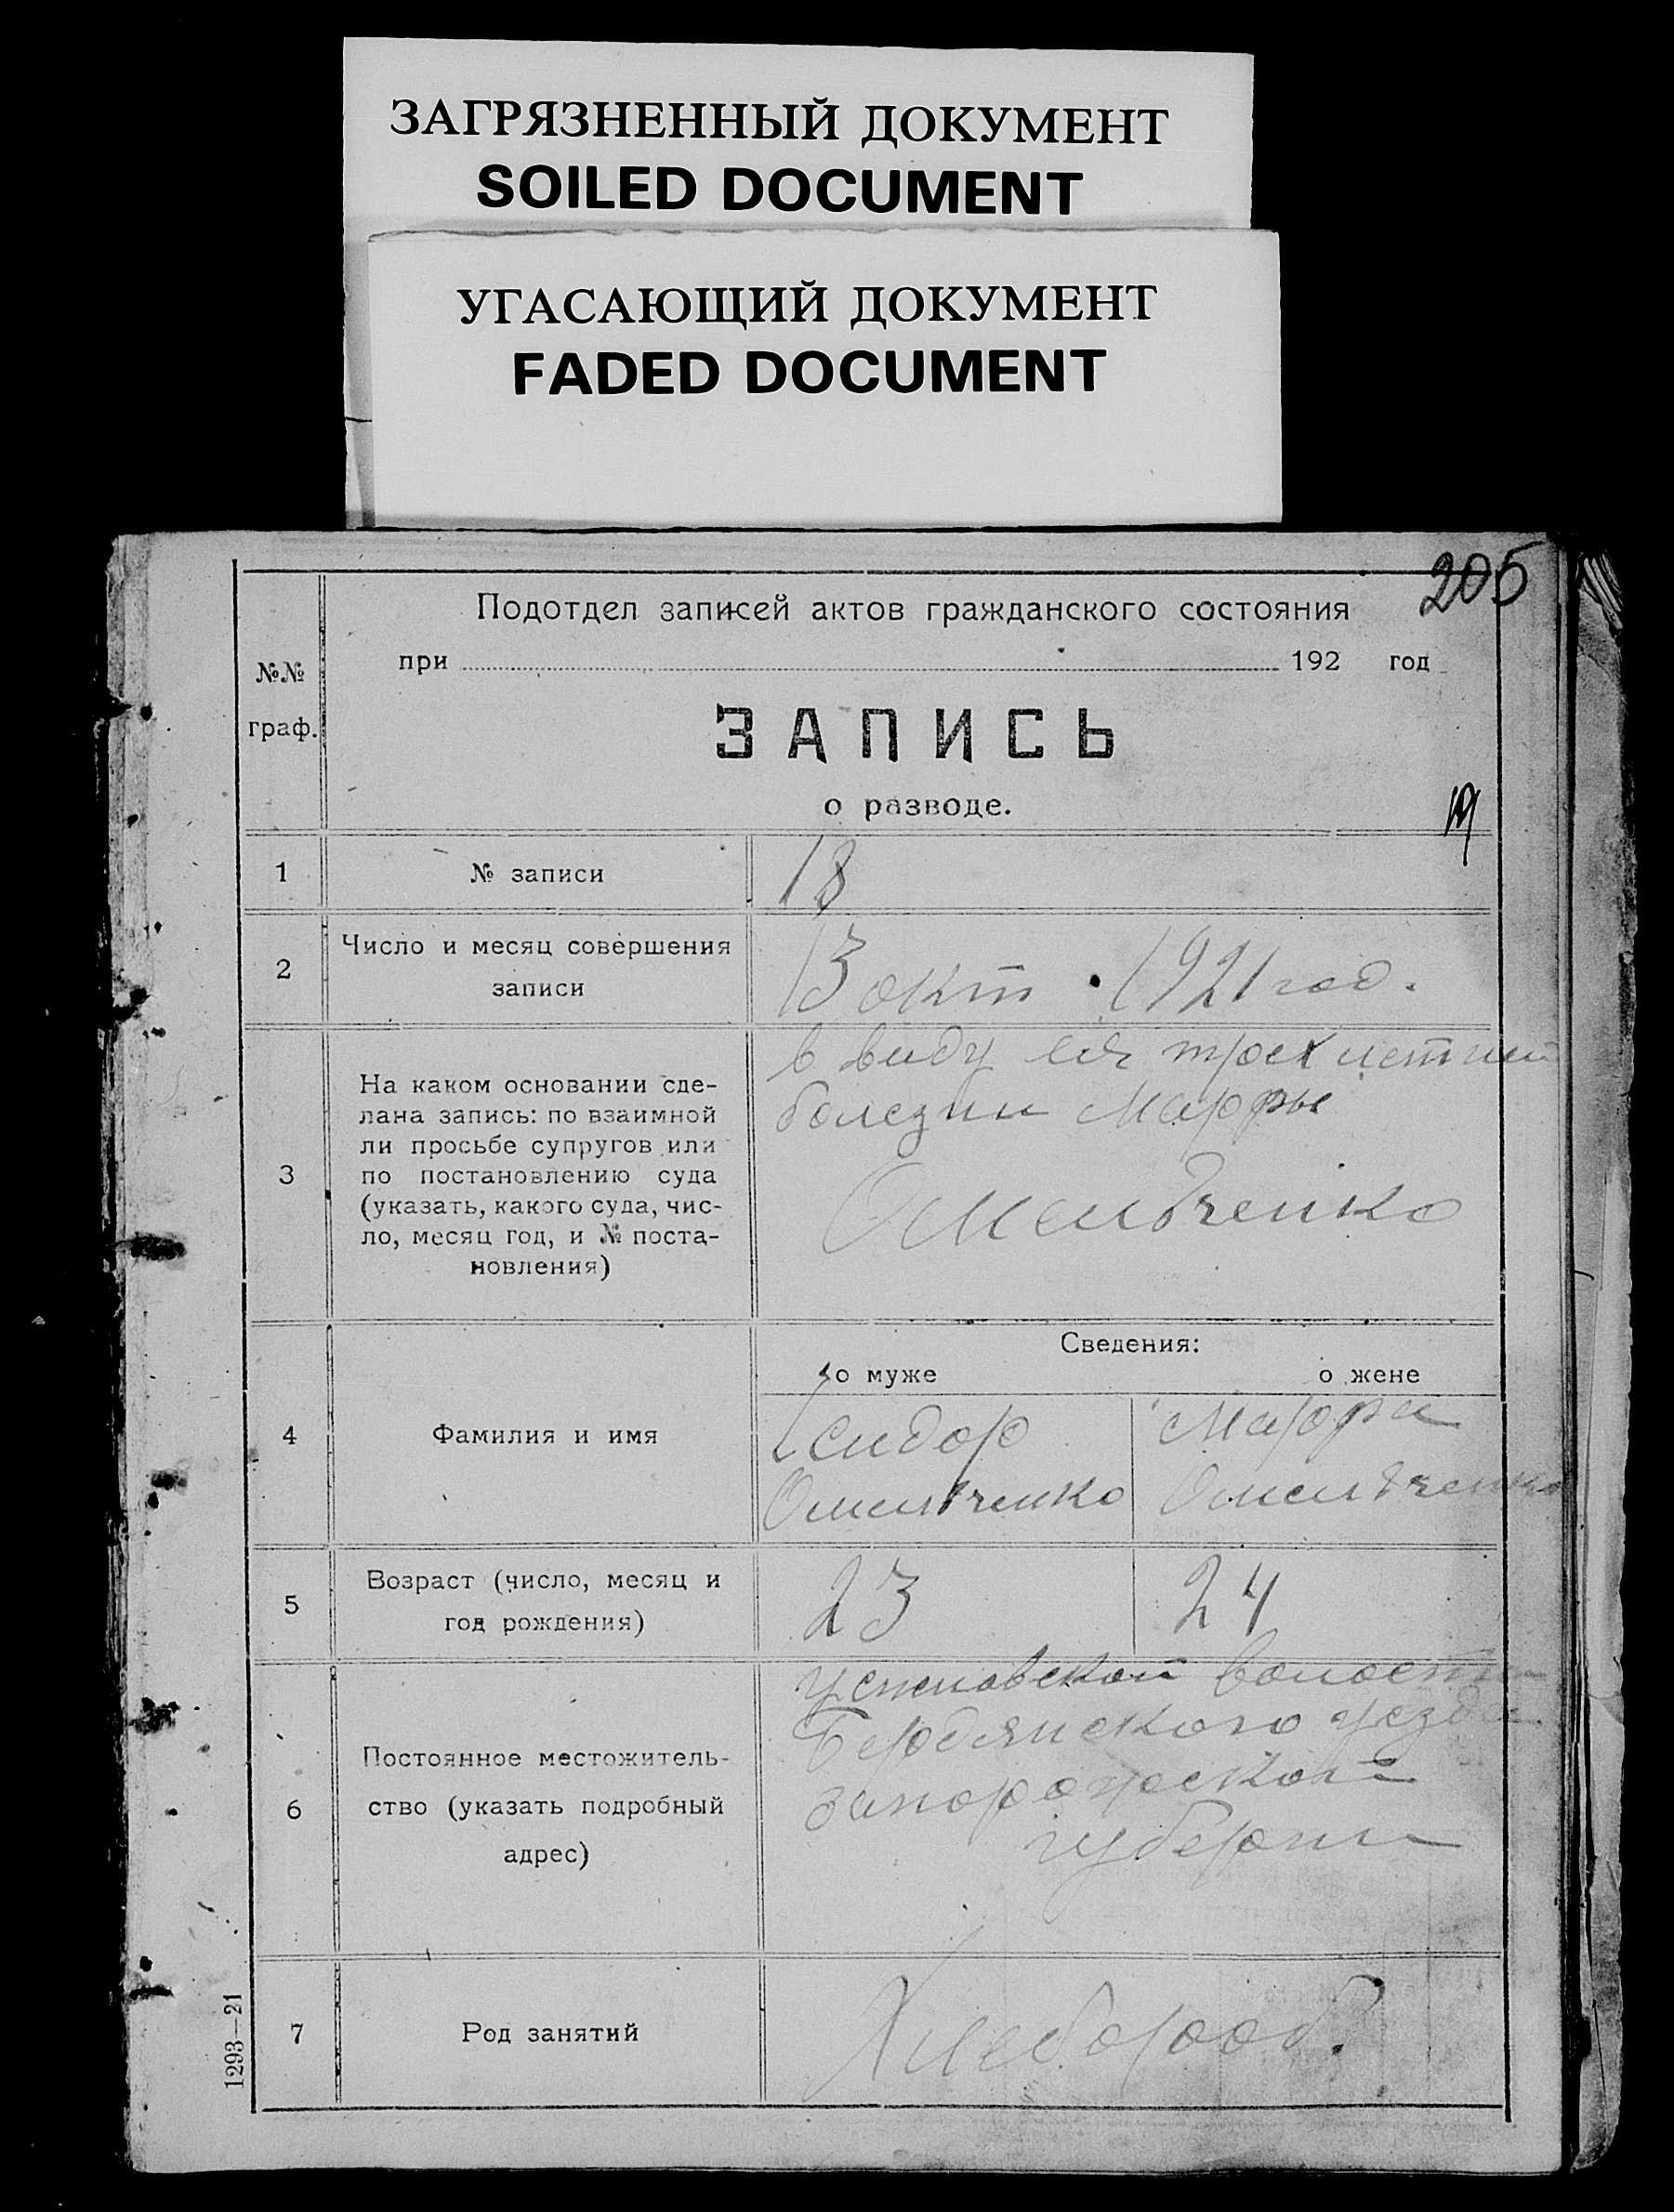 ЗАГРЯЗНЕННЫЙ ДОКУМЕНТ
SOILED DOCUMENT
УГАСАЮЩИЙ ДОКУМЕНТ
FADED DOCUMENT
205
№№
граф.
Подотдел записей актов гражданского состояния
при 192 год
ЗАПИСЬ
о разводе.
19
1
№ записи
18
2
Число и месяц совершения
записи
13 окт. 1921 год.
3
На каком основании сде-
лана запись: по взаимной
ли просьбе супругов или
по постановлению суда
(указать, какого суда, чис-
ло, месяц год, и № поста-
новления)
в виду трех летней
болезни Марфы
Омельченко
Сведения:
о муже
о жене
4
Фамилия и имя
Исидор
Омельченко
Марфа
Омельченко
5
Возраст (число, месяц и
год рождения)
23
24
6
Постоянное местожитель-
ство (указать подробный
адрес)
волости
Бердянского уезда
Запорожской
губернии
7
Род занятий
Хлебороб.
1293—21